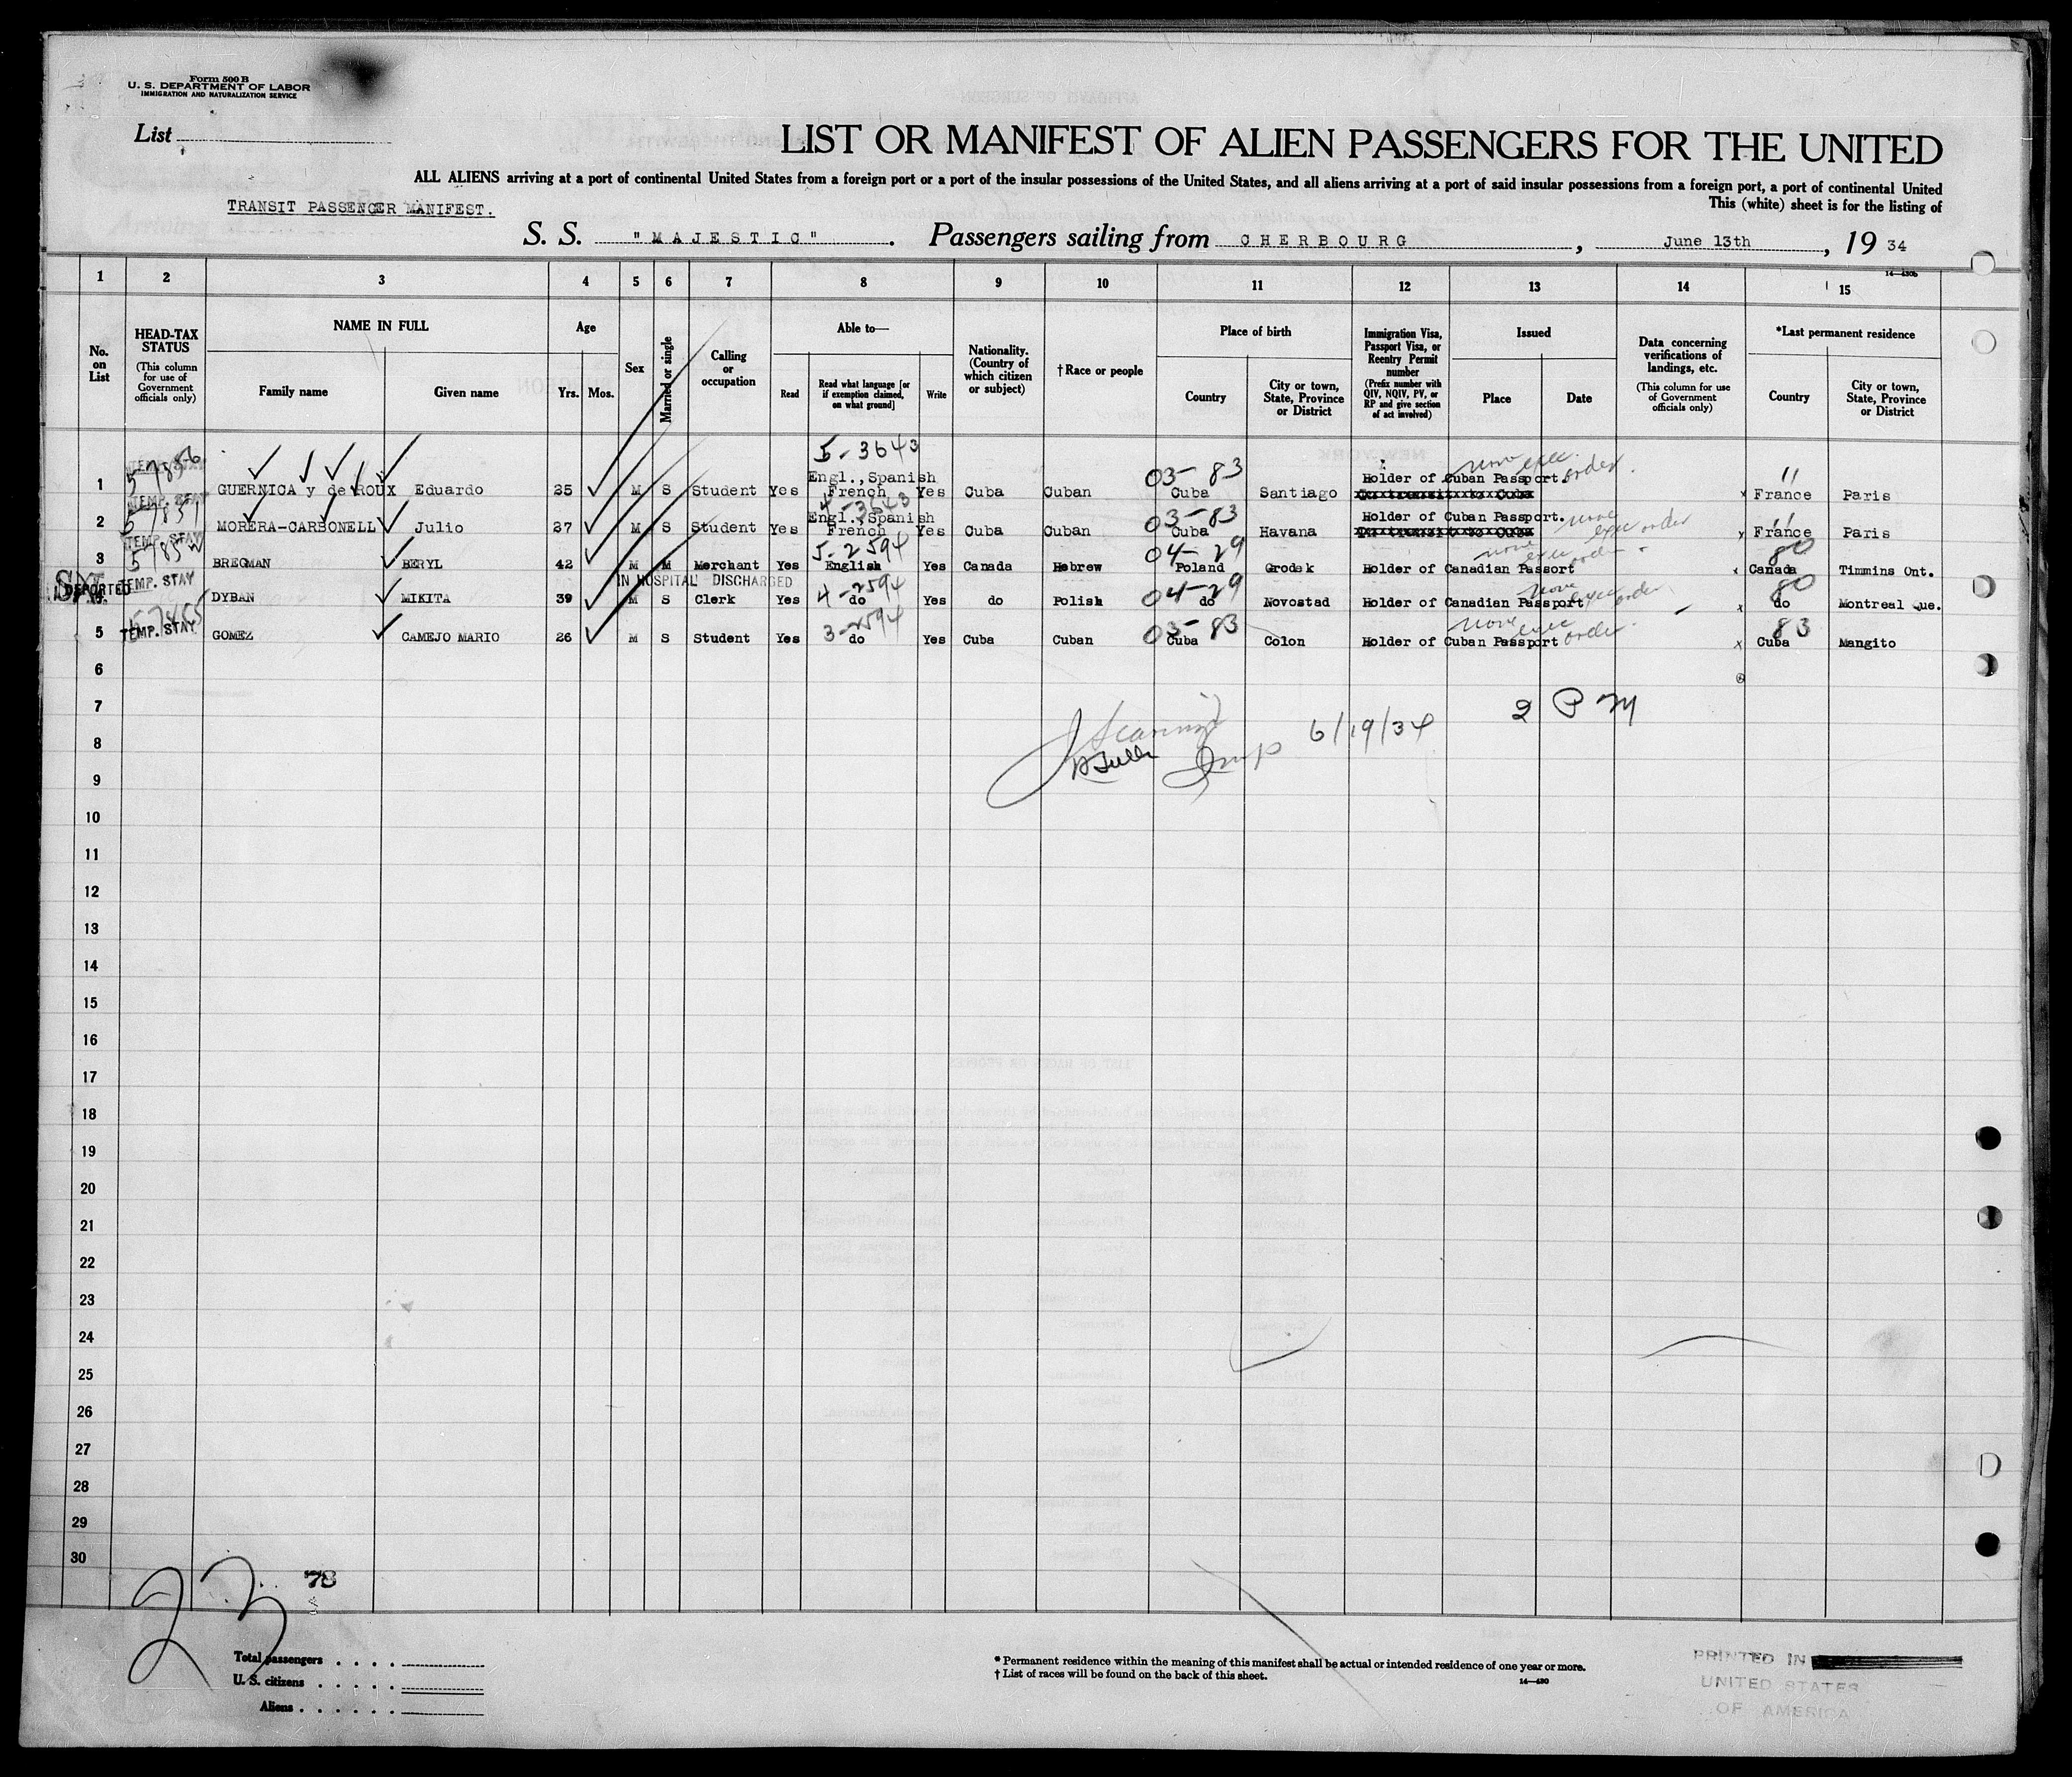 Form 500 B
U. S. DEPARTMENT OF LABOR
IMMIGRATION AND NATURALIZATION SERVICE
List
LIST OR MANIFEST OF ALIEN PASSENGERS FOR THE UNITED
ALL ALIENS arriving at a port of continental United States from a foreign port or a port of the insular possessions of the United States, and all aliens arriving at a port of said insular possessions from a foreign port, a port of continental United
This (white) sheet is for the listing of
TRANSIT PASSENGER MANIFEST.
S. S. "MAJESTIC". Passengers sailing from CHERBOURG, June 13th, 19 34
14—430b
1 2 3 4 5 6 7 8 9 10 11 12 13 14 15
No. on List
HEAD-TAX STATUS
(This column for use of Government officials only)
NAME IN FULL
Family name
Given name
Age
Yrs. Mos.
Sex
Married or single
Calling or occupation
Able to—
Read
Read what language [or if exemption claimed, on what ground]
Write
Nationality. (Country of which citizen or subject)
†Race or people
Place of birth
Country
City or town, State, Province or District
Immigration Visa, Passport Visa, or Reentry Permit number
(Prefix number with QIV, NQIV, PV, or RP and give section of act involved)
Issued
Place
Date
Data concerning verifications of landings, etc.
(This column for use of Government officials only)
*Last permanent residence
Country
City or town, State, Province or District
5-3643
03-83
none exec. order.
11
1 TEMP. STAY GUERNICA y de ROUX Eduardo 25 M S Student Yes Engl.,Spanish French Yes Cuba Cuban Cuba Santiago Holder of Cuban Passport. France Paris
4-3643
03-83
none exec order
11
2 TEMP. STAY MORERA-CARBONELL Julio 27 M S Student Yes Engl.,Spanish French Yes Cuba Cuban Cuba Havana Holder of Cuban Passport. France Paris
5-2594
04-29
none exec order
80
3 TEMP. STAY BREGMAN BERYL 42 M M Merchant Yes English Yes Canada Hebrew Poland Grodek Holder of Canadian Passort Canada Timmins Ont.
IN HOSPITAL DISCHARGED
DEPORTED
4-2594
04-29
none exec order
80
4 DYBAN MIKITA 39 M S Clerk Yes do Yes do Polish do Novostad Holder of Canadian Passport do Montreal Que.
3-2594
03-83
none exec order
83
5 TEMP. STAY GOMEZ CAMEJO MARIO 26 M S Student Yes do Yes Cuba Cuban Cuba Colon Holder of Cuban Passport Cuba Mangito
6
7
2 P M
6/19/34
8
Insp
9
10
11
12
13
14
15
16
17
18
19
20
21
22
23
24
25
26
27
28
29
30
23
78
Total passengers
U. S. citizens
Aliens
* Permanent residence within the meaning of this manifest shall be actual or intended residence of one year or more.
† List of races will be found on the back of this sheet.
14—430
PRINTED IN
UNITED STATES
OF AMERICA